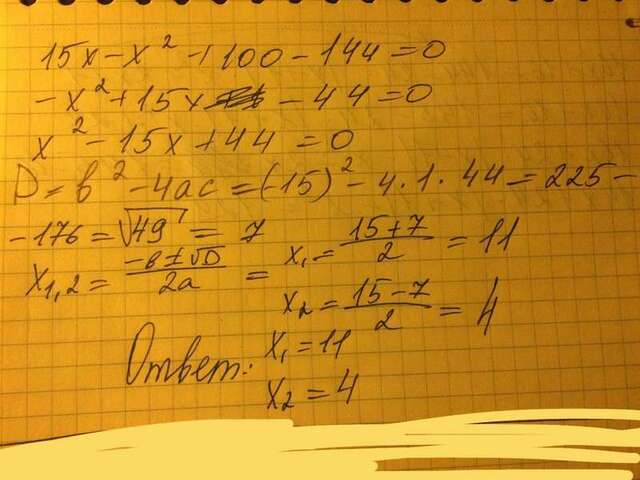 15x - x² + 100 - 144 = 0
-x² + 15x - 44 = 0
x² - 15x + 44 = 0
D = b² - 4ac = (-15)² - 4·1·44 = 225 -
- 176 = √49 = 7
x₁,₂ = (-b ± √D)/2a = x₁ = (15+7)/2 = 11
x₂ = (15-7)/2 = 4
Ответ: x₁ = 11
x₂ = 4